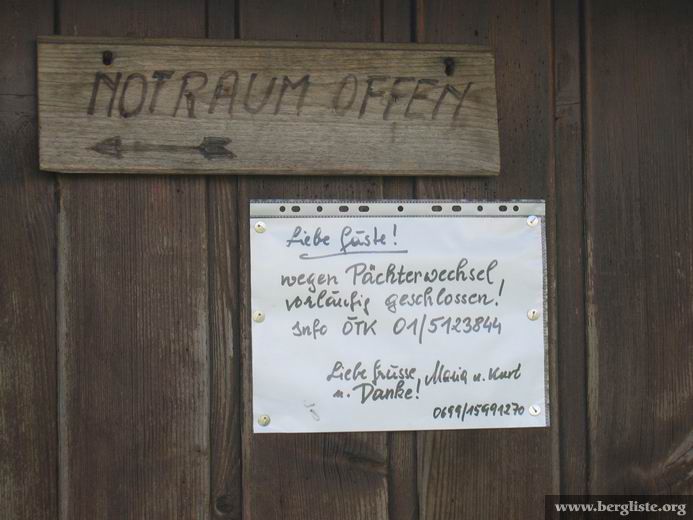 NOTRAUM OFFEN
Liebe Gäste!
wegen Pächterwechsel
vorläufig geschlossen!
Info ÖTK 01/5123844
Liebe Grüsse, Maria u. Kurt
u. Danke!
0699/15991270
www.bergliste.org